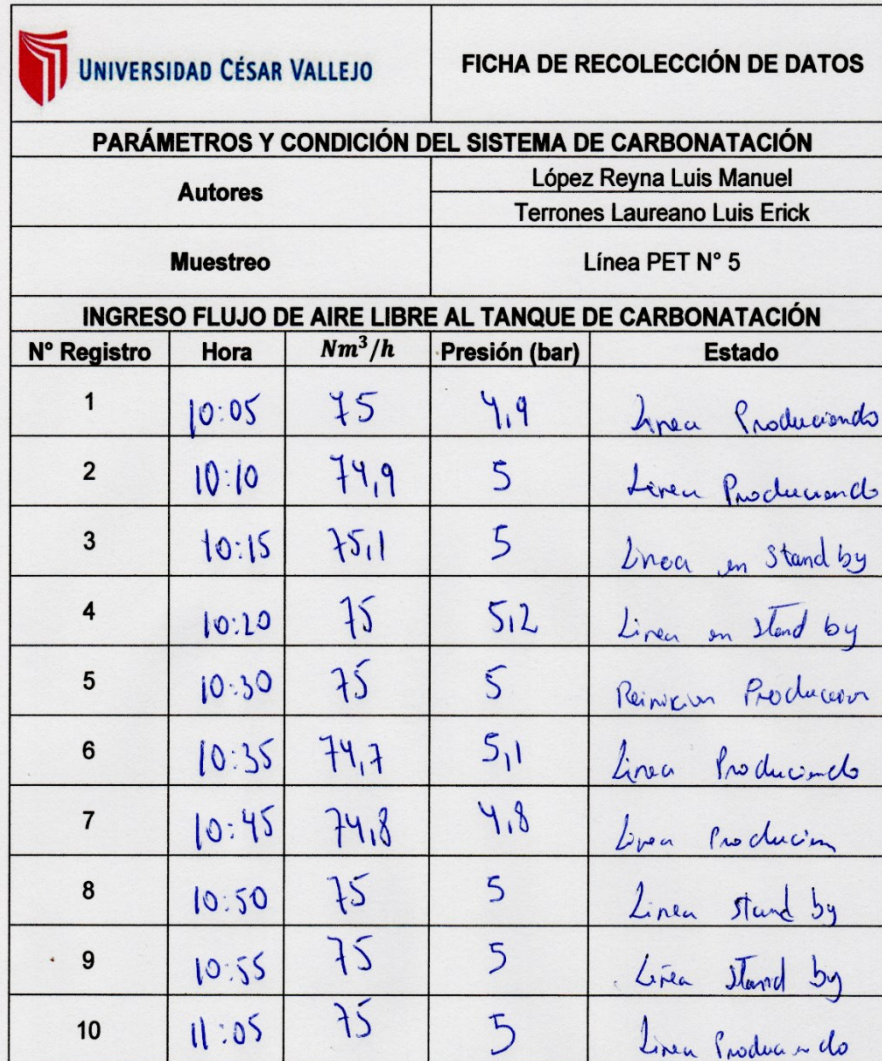 UNIVERSIDAD CÉSAR VALLEJO
FICHA DE RECOLECCIÓN DE DATOS
PARÁMETROS Y CONDICIÓN DEL SISTEMA DE CARBONATACIÓN
Autores
López Reyna Luis Manuel
Terrones Laureano Luis Erick
Muestreo Línea PET N° 5
INGRESO FLUJO DE AIRE LIBRE AL TANQUE DE CARBONATACIÓN
N° Registro Hora Nm³/h Presión (bar) Estado
1 10:05 75 4,9 Linea Produciendo
2 10:10 74,9 5 Linea Produciendo
3 10:15 75,1 5 Linea en Stand by
4 10:20 75 5,2 Linea en Stand by
5 10:30 75 5 Reinician Produccion
6 10:35 74,7 5,1 Linea Produciendo
7 10:45 74,8 4,8 Linea
8 10:50 75 5 Linea Stand by
9 10:55 75 5 Linea Stand by
10 11:05 75 5 Linea Produciendo